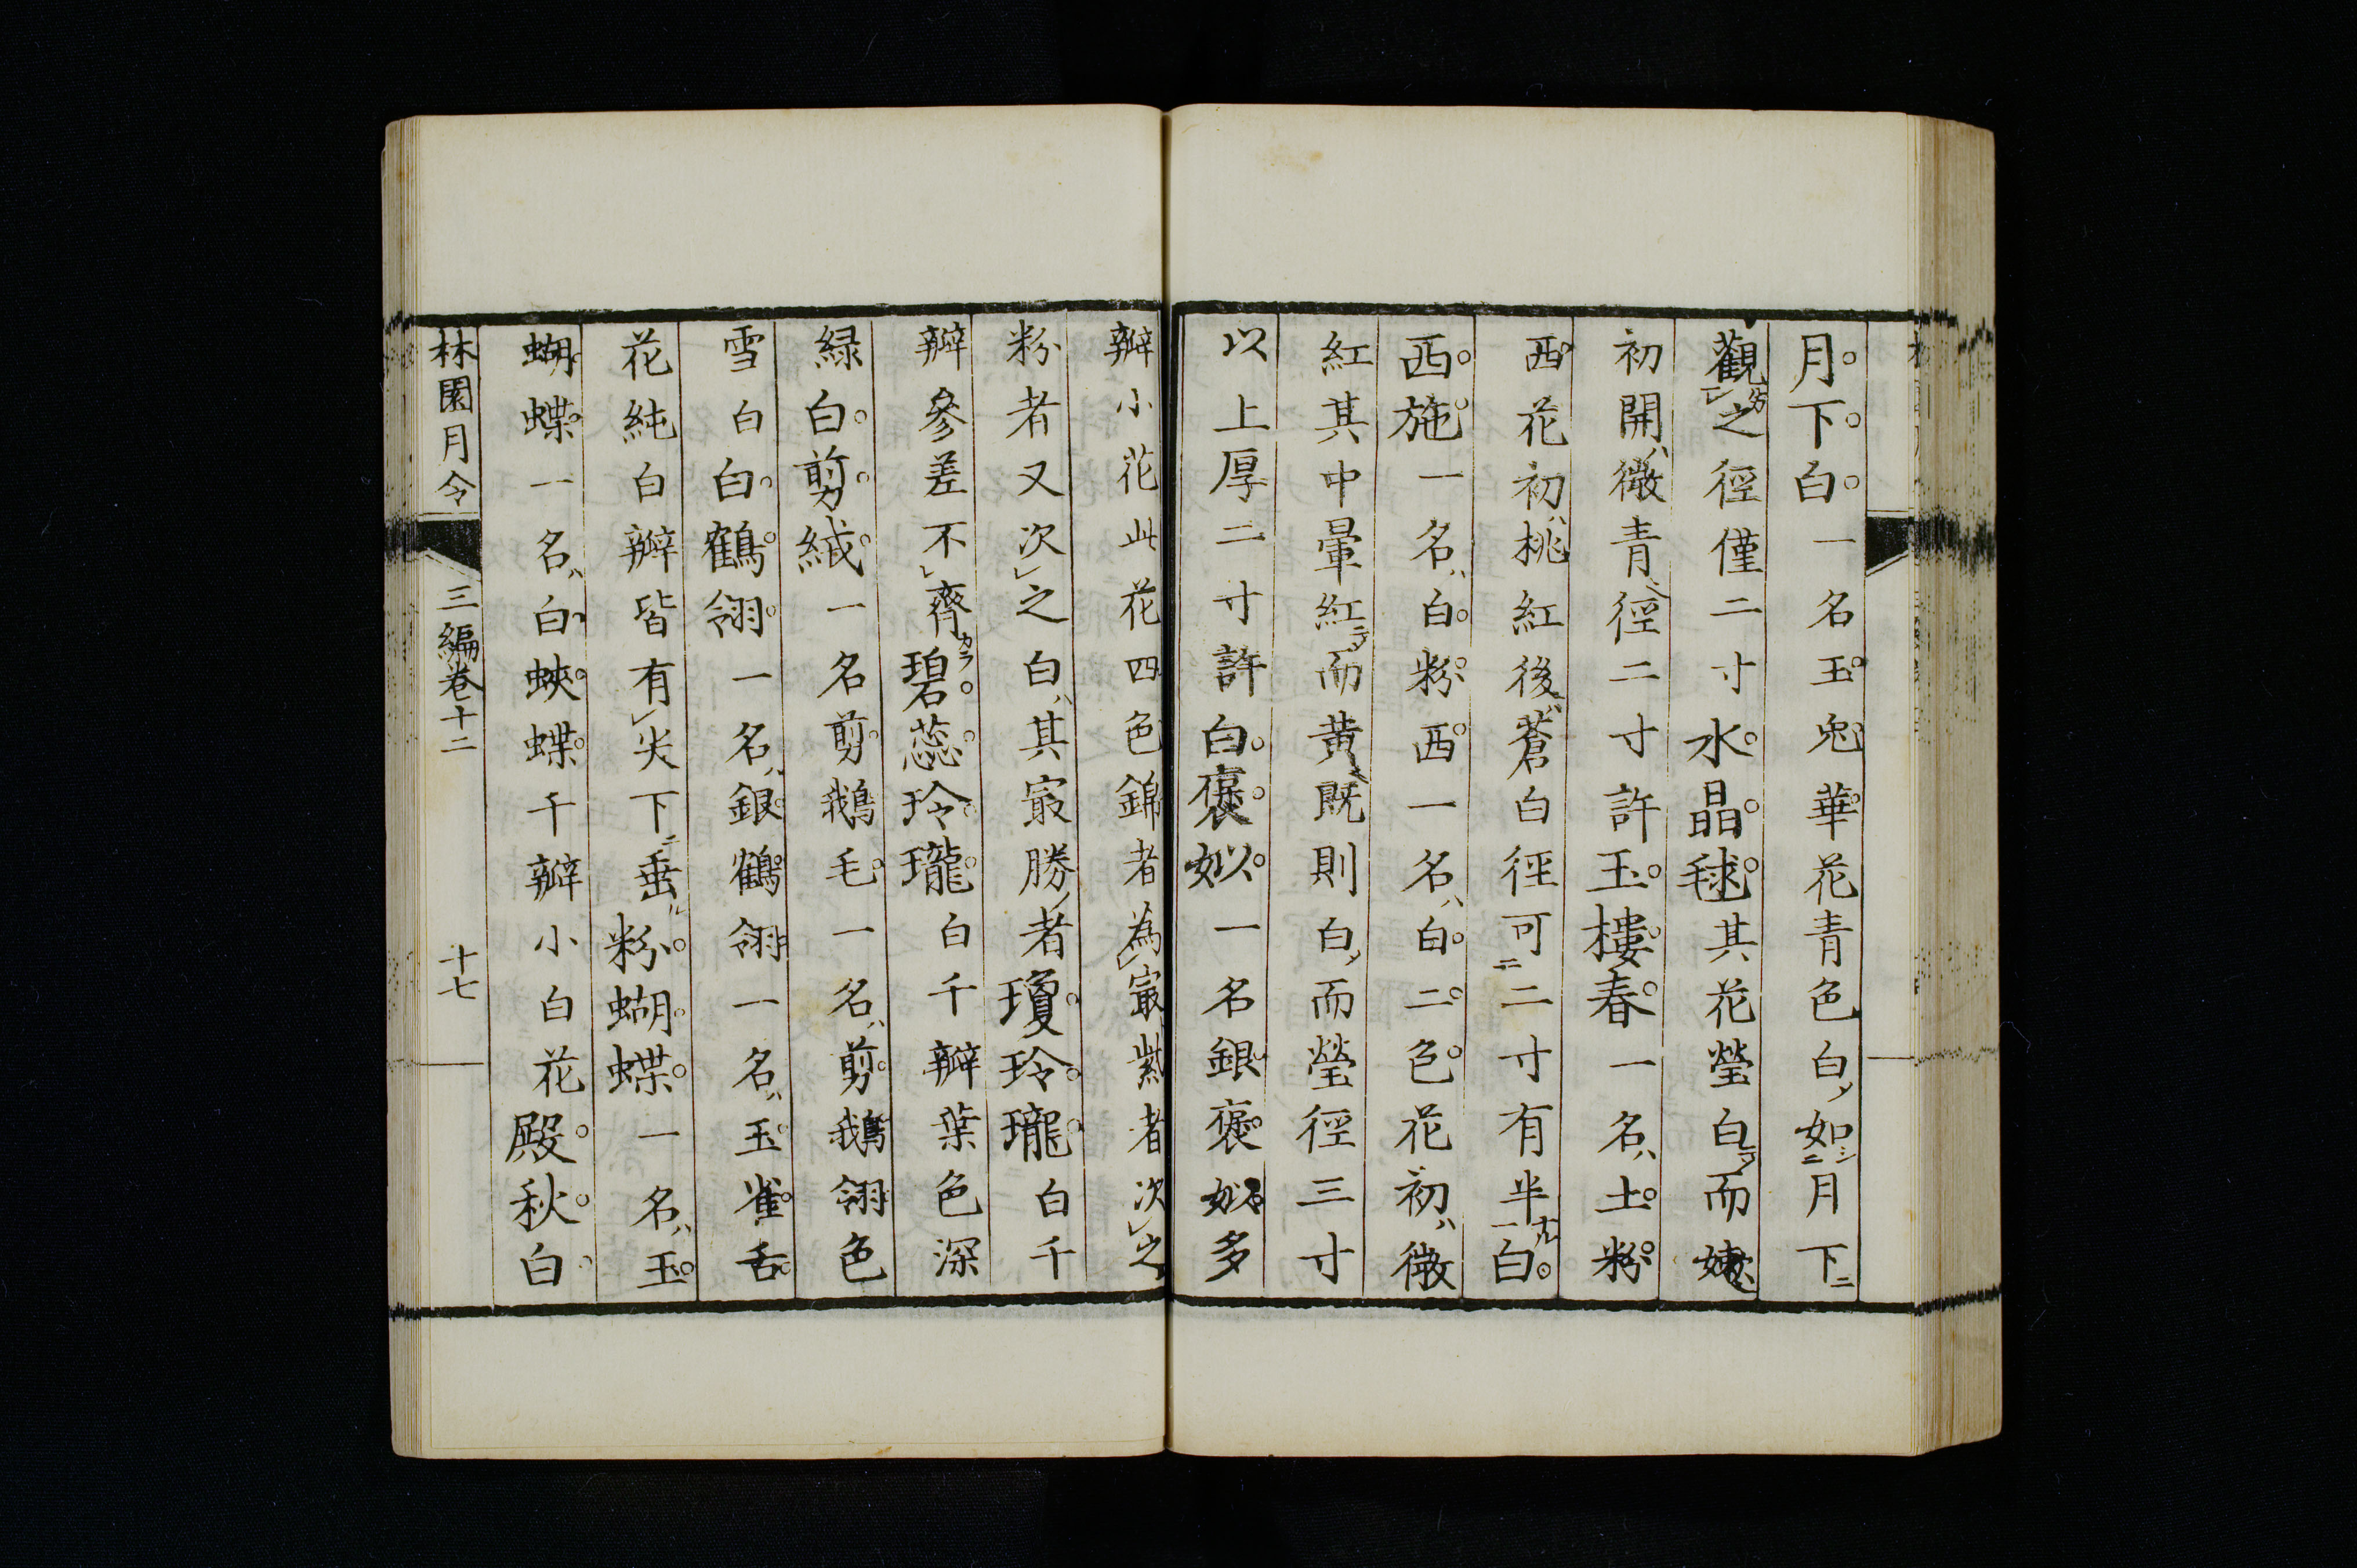 月下白一名玉兎華花青色白如月下
觀之徑僅二寸水晶毬其花瑩白而媆
初開微青徑二寸許玉樓春一名土粉
西花初桃紅後蒼白徑可二寸有半白
西施一名白粉西一名白二色花初微
紅其中暈紅而黄既則白而瑩徑三寸
以上厚二寸許白褒姒一名銀褒姒多
瓣小花此花四色錦者為㝡紫者次之
粉者又次之白其㝡勝者瓊玲瓏白千
瓣參差不齊碧蕊玲瓏白千瓣葉色深
緑白剪絨一名剪鵝毛一名剪鵝翎色
雪白白鶴翎一名銀鶴翎一名玉雀舌
花純白瓣皆有尖下垂粉蝴蝶一名玉
蝴蝶一名白蛺蝶千瓣小白花殿秋白
林園月令 三編卷十二 十七